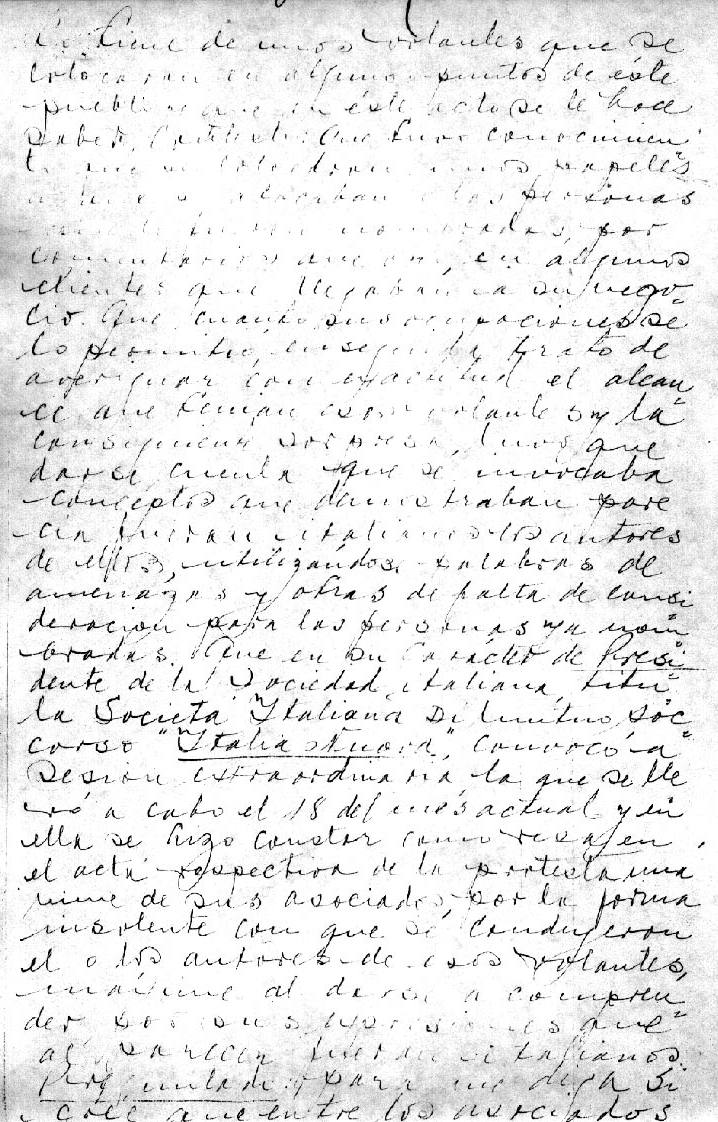 tiene de unos volantes que se
colocaron en algunos puntos de éste
pueblo que en éste acto se le hace
saber, Contestó: Que tuvo conocimien
to que se colocaron unos papeles
atacaban a las personas
nombradas, por
comentarios que oyó, en algunos
clientes que llegaban a su nego-
cio. Que cuando sus ocupaciones se
lo permitió, enseguida trató de
averiguar con exactitud el alcan-
ce que tenian esos volantes y la
consiguiente sorpresa, tuvo que
darse cuenta que se invocaba
conceptos que demostraban pare
cia fueran italianos los autores
de ellos, utilizándose palabras de
amenazas y otras de falta de consi
deracion para las personas ya nom-
bradas. Que en su Caracter de Presi-
dente de la Sociedad italiana, titu-
la Societá Italiana Di Mutuo Soc
corso "Italia Nuova", convocó a
Sesion extraordinaria, la que se lle
vó a cabo el 18 del mes actual y en
ella se hizo constar como reza en
el acta respectiva de la protesta una
nime de sus asociados, por la forma
insolente con que se condujeron
el o los autores de esos volantes,
máxime al darse a compren
der por sus expresiones que
al parecer fueran italianos.
Preguntado: para que diga si
cree que entre los asociados